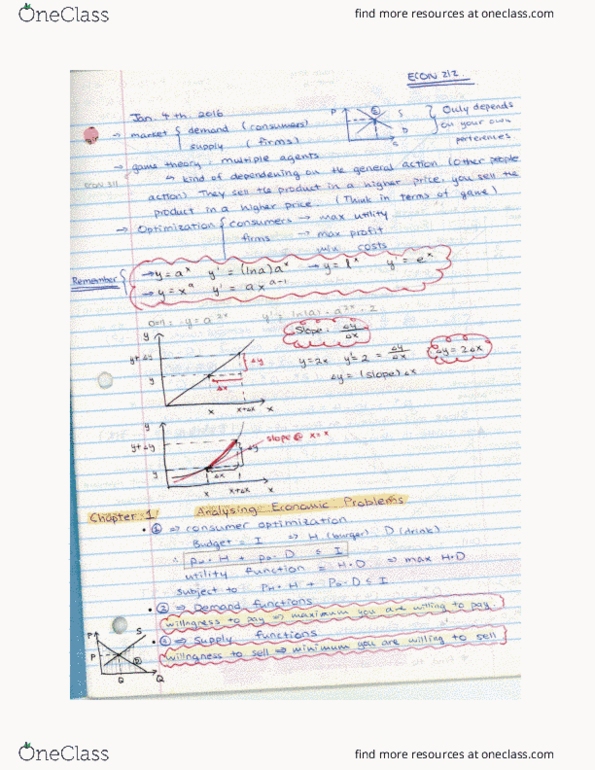 OneClass
find more resources at oneclass.com
ECON 212.
Jan. 4th 2016
→ market { demand (consumers)
supply (firms)
P S D Q
} Only depends
on your own
preferences
→ game theory : multiple agents
↳ kind of dependening on the general action (other people
action) They sell the product in a higher price, you sell the
product in a higher price. (Think in terms of game)
→ Optimization { consumers → max utility
firms → max profit
min costs
Remember {
→ y = a^x y' = (lna) a^x → y = l^x y' = e^x
→ y = x^a y' = a x^(a-1)
y = a^2x y' = ln(a) · a^2x · 2
y
y+Δy
y
Δy
Δx
x x+Δx x
Slope: Δy/Δx
y=2x y'=2 = Δy/Δx
Δy = 2Δx
Δy = (slope) Δx
y
y+Δy
y
Δy
Δx
x x+Δx x
slope @ x=x
Chapter: 1 Analysing Economic Problems
• ① ⇒ consumer optimization
Budget = I ⇒ H (burger) D (drink)
∴ PH · H + PD · D ≤ I
utility function = H·D ⇒ max H·D
subject to PH · H + PD · D ≤ I
• ② ⇒ Demand functions
willngness to pay ⇒ maximum you are willing to pay.
⇒ Supply functions
willngness to sell ⇒ minimum you are willing to sell
P S
P
Q Q
OneClass
find more resources at oneclass.com